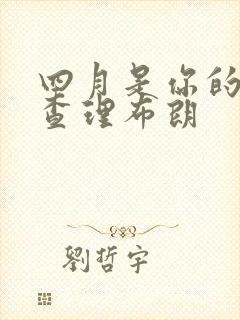 四月是你的
查理布朗
劉哲宇